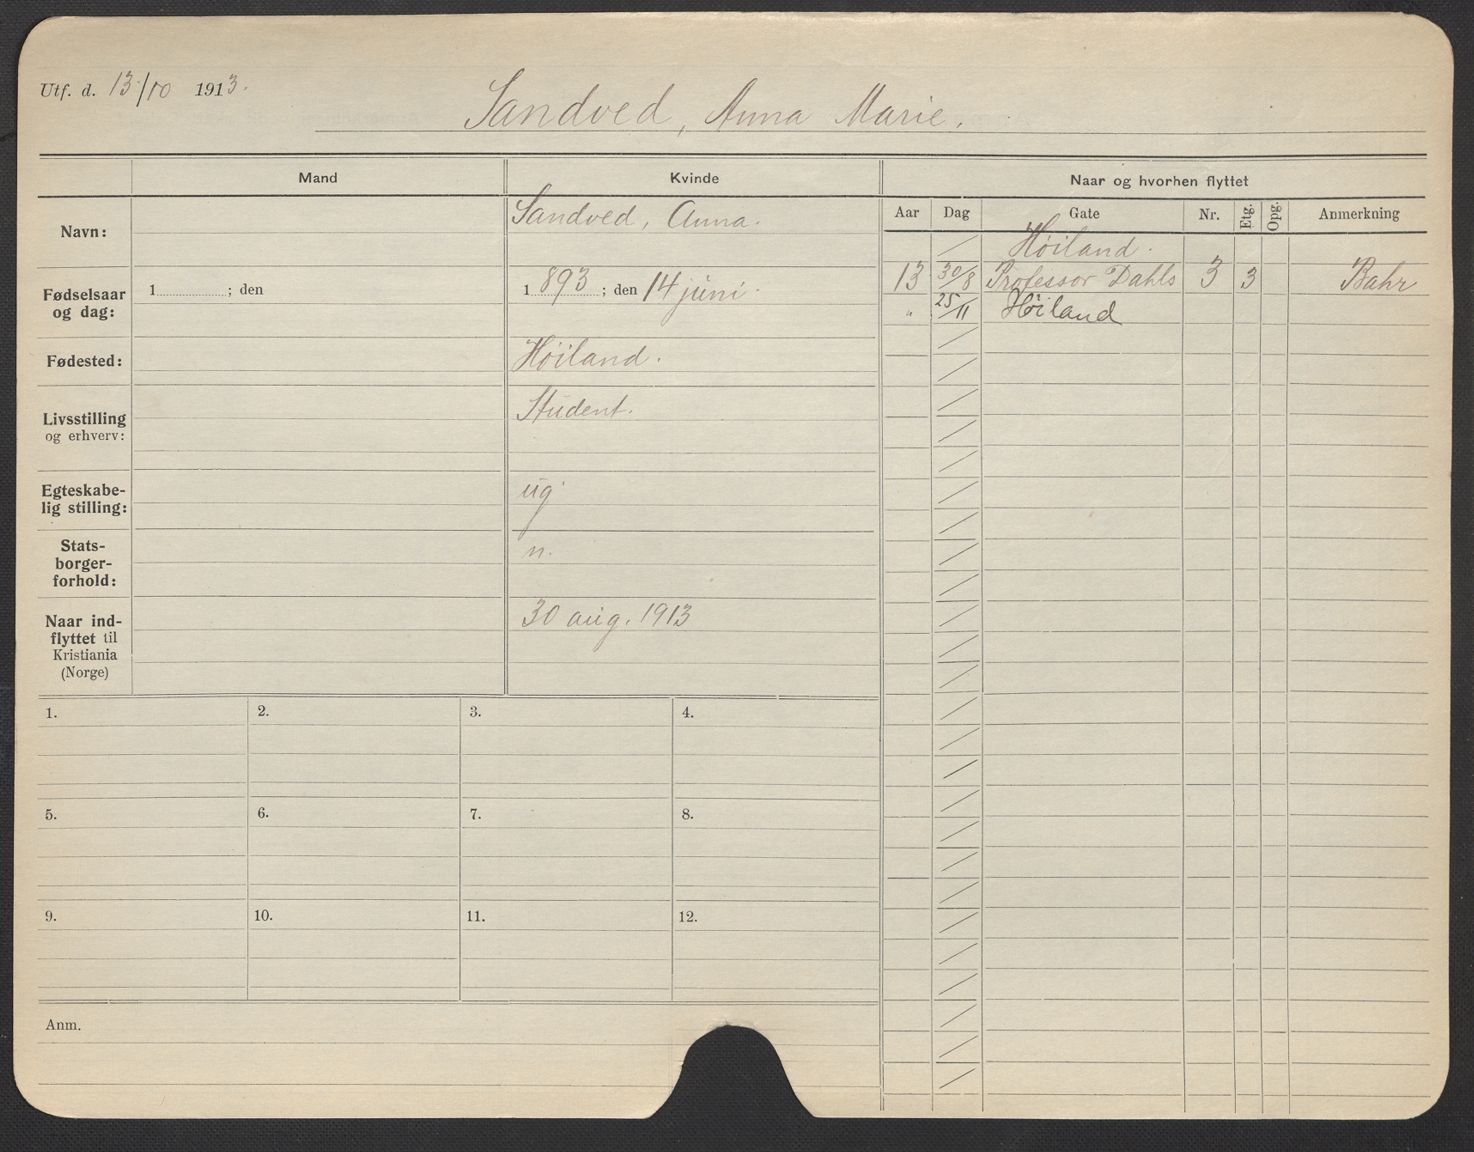 Utf. d. 13/10 1913.
Sandved, Anna Marie.
Mand
Kvinde
Naar og hvorhen flyttet
Navn:
Sandved, Anna.
Aar Dag Gate Nr. Etg. Opg. Anmerkning
Høiland.
13 30/8 Professor Dahls 3 3 Bahr
" 25/11 Höiland
Fødselsaar
og dag:
1 ; den
1893; den 14 juni.
Fødested:
Höiland.
Livsstilling
og erhverv:
Student.
Egteskabe-
lig stilling:
ug.
Stats-
borger-
forhold:
n.
Naar ind-
flyttet til
Kristiania
(Norge)
30 aug. 1913
1. 2. 3. 4.
5. 6. 7. 8.
9. 10. 11. 12.
Anm.